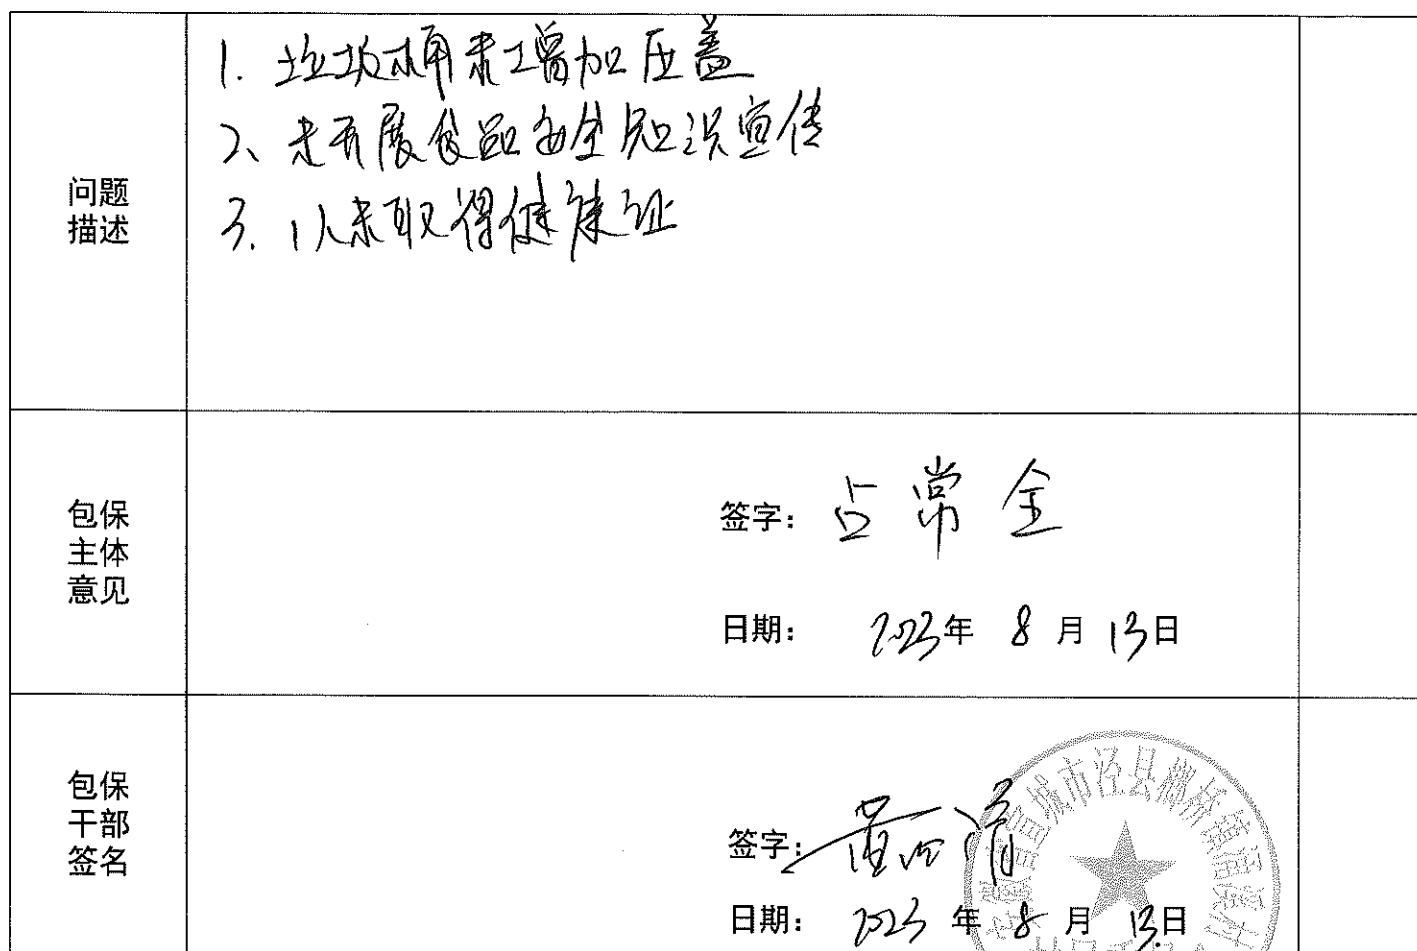 问题
描述
1. 垃圾桶未增加压盖
2、未开展食品安全知识宣传
3. 1人未取得健康证
包保
主体
意见
签字: 占常全
日期: 2023年 8月 13日
包保
干部
签名
签字:
日期: 2023年 8月 13日
宣城市泾县榔桥镇涌溪村